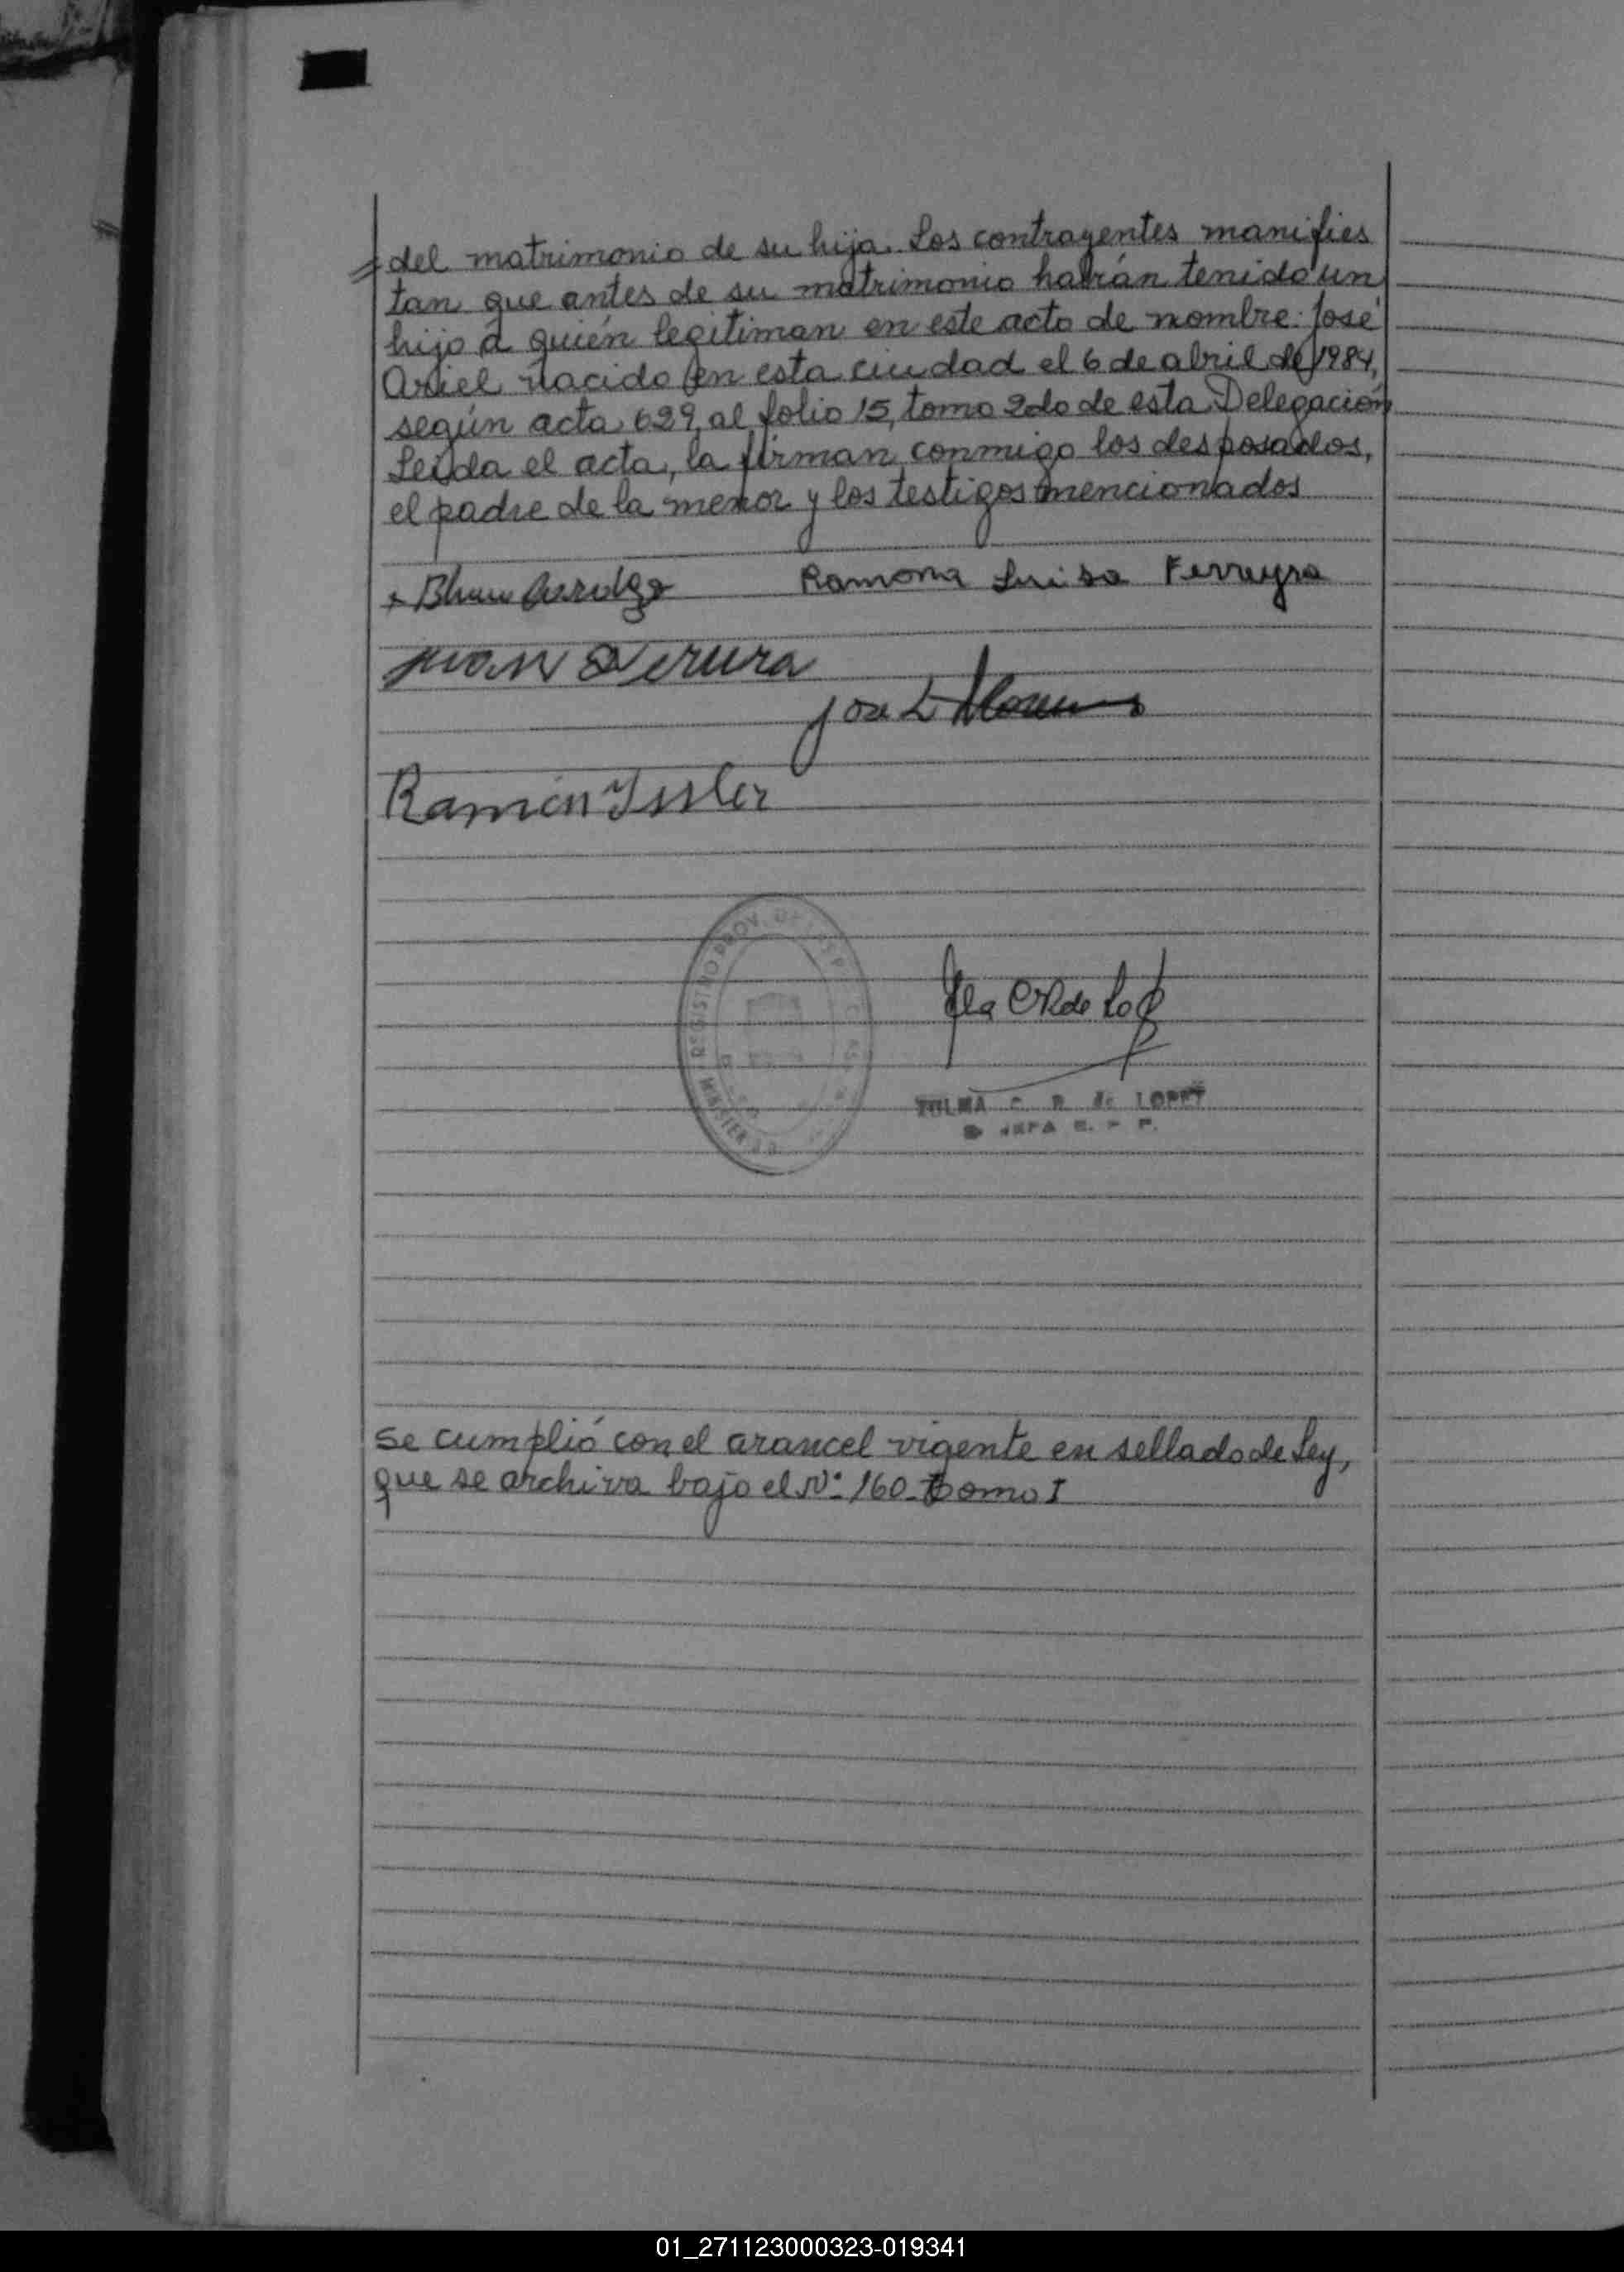 del matrimonio de su hija. Los contrayentes manifies
tan que antes de su matrimonio habían tenido un
hijo a quién legitiman en este acto de nombre: José
Ariel nacido en esta ciudad el 6 de abril de 1984,
según acta 629, al folio 15, tomo 2do de esta Delegación
Leída el acta, la firman conmigo los desposados,
el padre de la menor y los testigos mencionados
Ramona Luisa Ferreyra
Juan
José L
Ramón Issler
REGISTRO PROV. DE
C. R. de LOPEZ
JEFA
Se cumplió con el arancel vigente en sellado de Ley,
que se archiva bajo el Nº 160 Tomo I
01_271123000323-019341